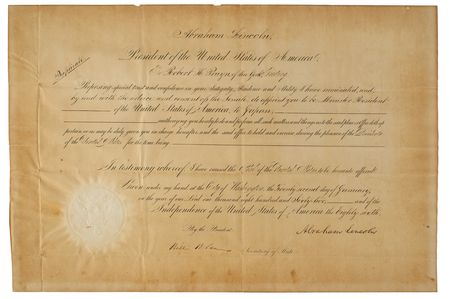 Abraham Lincoln,
President of the United States of America.
To Robert H. Pruyn of the City Greeting
Duplicate
Reposing special trust and confidence in your Integrity, Prudence and Ability I have nominated, and
by and with the advice and consent of the Senate, do appoint you to be Minister Resident
of the United States of America, to Japan;
authorizing you hereby to do and perform all such matters and things as to the said place or office
during the pleasure of the President
of the United States for the time being.
In testimony whereof, I have caused the Seal of the United States to be hereunto affixed.
Given under my hand at the City of Washington, the Twenty second day of January,
in the year of our Lord one thousand eight hundred and sixty two, and of the
Independence of the United States of America, the Eighty sixth.
By the President
Abraham Lincoln
Secretary of State